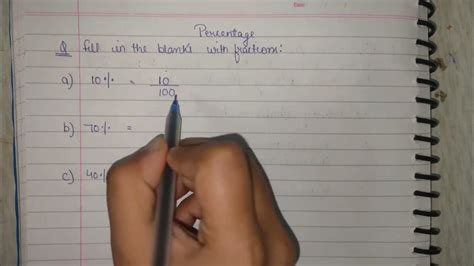 Date
Percentage
Q fill in the blanks with fractions:
a) 10% = 10/100
b) 70% =
c) 40%